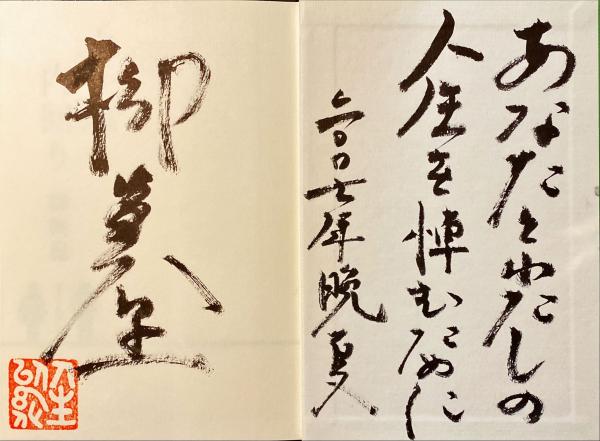 あなたとわたしの
人生を悼むために
二〇〇七年晩夏
柳美里